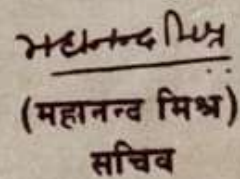 महानन्द मिश्र
(महानन्द मिश्र)
सचिव